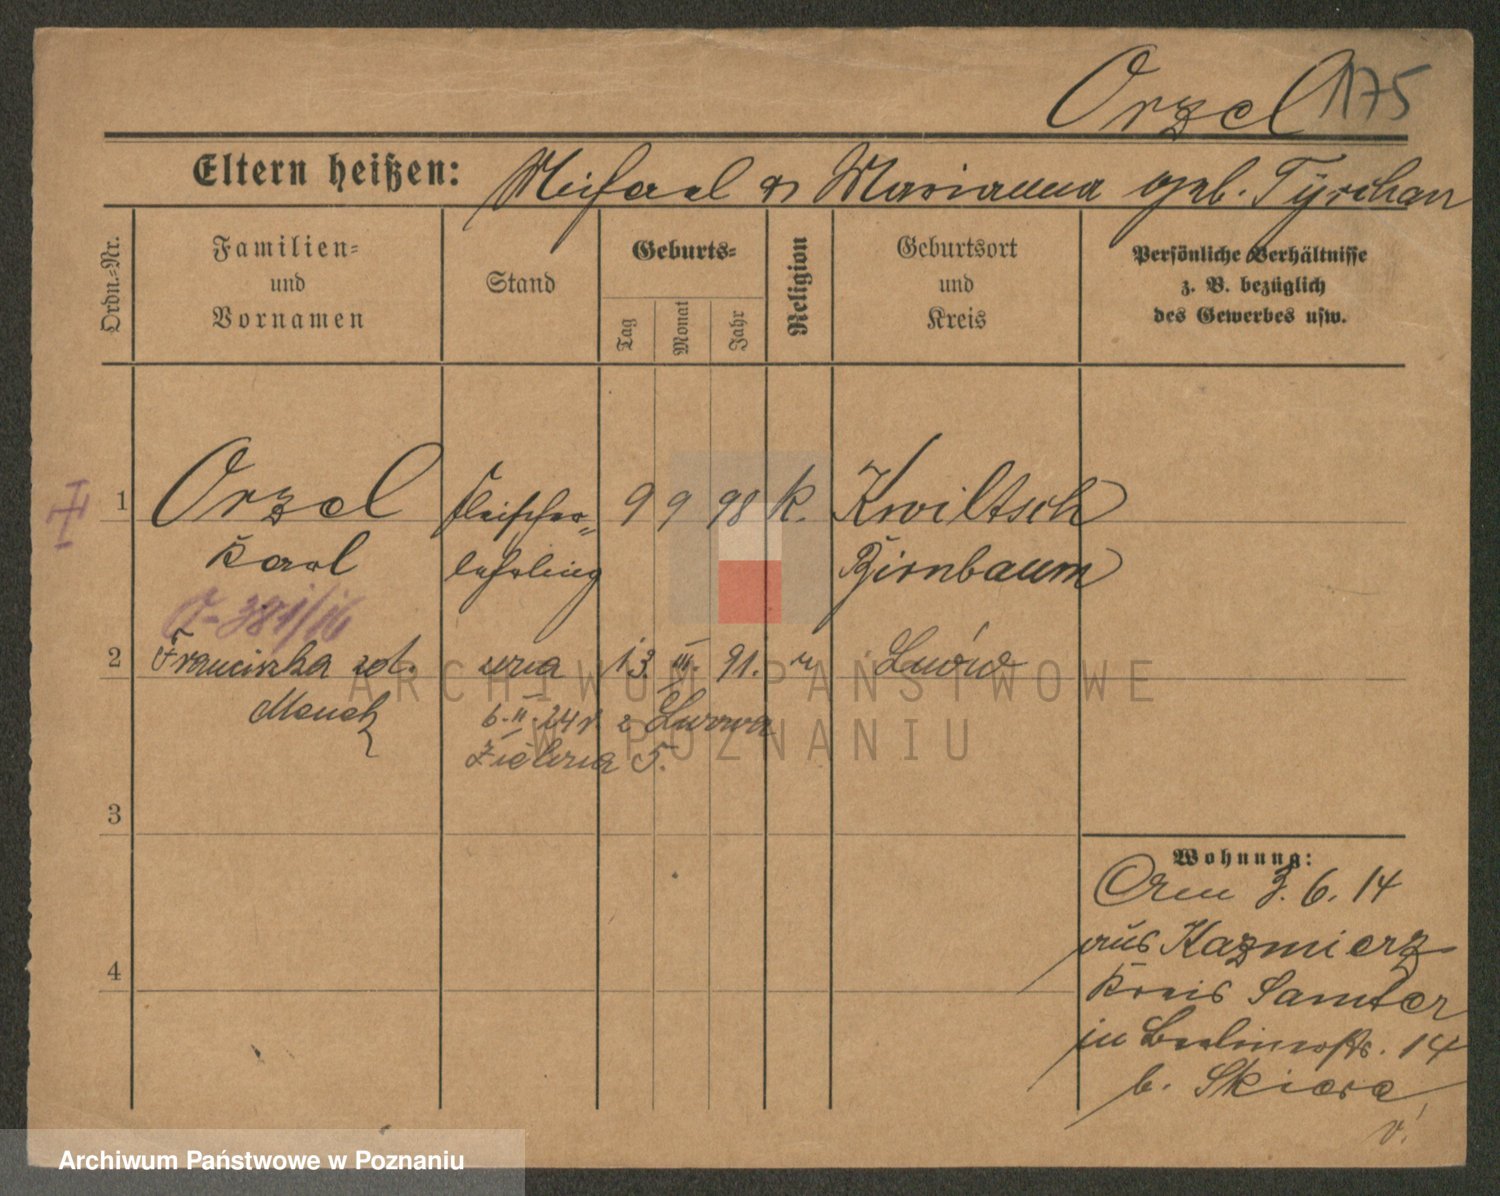 Orzel 175
Eltern heißen: Michael u Marianna geb. Tyrchan
Ordn.-Nr.
Familien-
und
Vornamen
Stand
Geburts-
Tag
Monat
Jahr
Religion
Geburtsort
und
Kreis
Persönliche Verhältnisse
z. B. bezüglich
des Gewerbes usw.
1 Orzel Fleischer- 9 9 98 K. Kwiltsch
Karl lehrling Birnbaum
J-381/16
2 Franciszka zd. żona 13. III. 91. r. Lwów
6.II.24 r z Lwowa
Zielona 5.
3
4
Wohnung:
Am 3. 6. 14
aus Kazmierz
Kreis Samter
in Berlinerstr. 14
b. Skiera
v!
ARCHIWUM PAŃSTWOWE
W POZNANIU
Archiwum Państwowe w Poznaniu